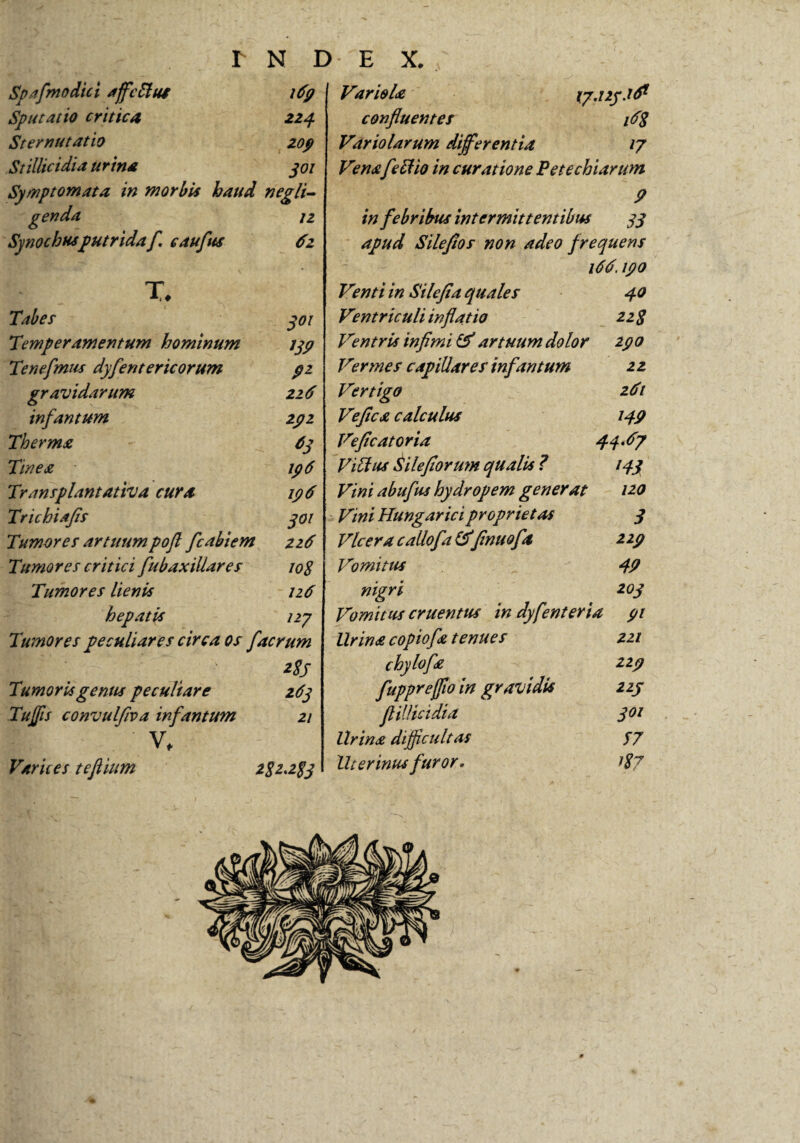 INDEX.
Spasmodici affectus 169
Sputatio critica 224
Sternutatio 209
Stillicidia urinæ 301
Symptomata in morbis haud negli-
genda 12
Synochus putrida s. causus 62
T.
Tabes 301
Temperamentum hominum 139
Tenesmus dysentericorum 92
gravidarum 226
infantum 292
Thermæ 63
Tineæ 196
Transplantativa cura 196
Trichiasis 301
Tumores artuum post scabiem 226
Tumores critici subaxillares 108
Tumores lienis 126
hepatis 127
Tumores peculiares circa os sacrum
285
Tumoris genus peculiare 263
Tussis convulsiva infantum 21
V.
Varices testium 282.283
Variolæ 17.125.161
confluentes 168
Variolarum differentia 17
Venæsectio in curatione Petechiarum
9
in febribus intermittentibus 33
apud Silesios non adeo frequens
166.190
Venti in Silesia quales 40
Ventriculi inflatio 228
Ventris infimi & artuum dolor 290
Vermes capillares infantum 22
Vertigo 261
Vesicæ calculus 149
Vesicatoria 44.67
Victus Silesiorum qualis? 143
Vini abusus hydropem generat 120
Vini Hungarici proprietas 3
Vlcera callosa & sinuosa 229
Vomitus 49
nigri 203
Vomitus cruentus in dysenteria 91
Urinæ copiosæ tenues 221
chylosæ 229
suppressio in gravidis 225
stillicidia 301
Urinæ difficultas 57
Uterinus furor. 187